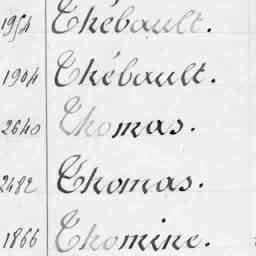 1954 Thébault.
1904 Thébault.
2640 Thomas.
2482 Thomas.
1866 Thomine.